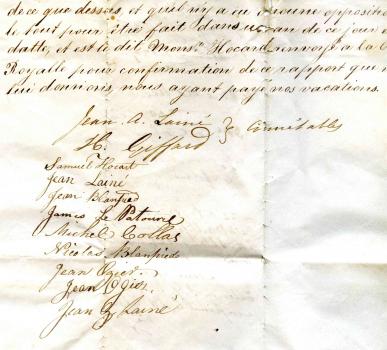 de ce que dessus, et quel n'y a eu aucune opposition
le tout pour être fait dans un an de ce jour
datte, et est le dit Mons.r Hocard renvoyé à la
Royalle pour confirmation de ce rapport que
lui donnons, nous ayant payé nos vacations.
Jean A. Lainé } Connétables
H. Giffard
Samuel Hocart
Jean Lainé
Jean Blanpied
James Le Patourel
Michel Collas
Nicolas Blanpied
Jean Ogier
Jean Ogier
Jean Lainé